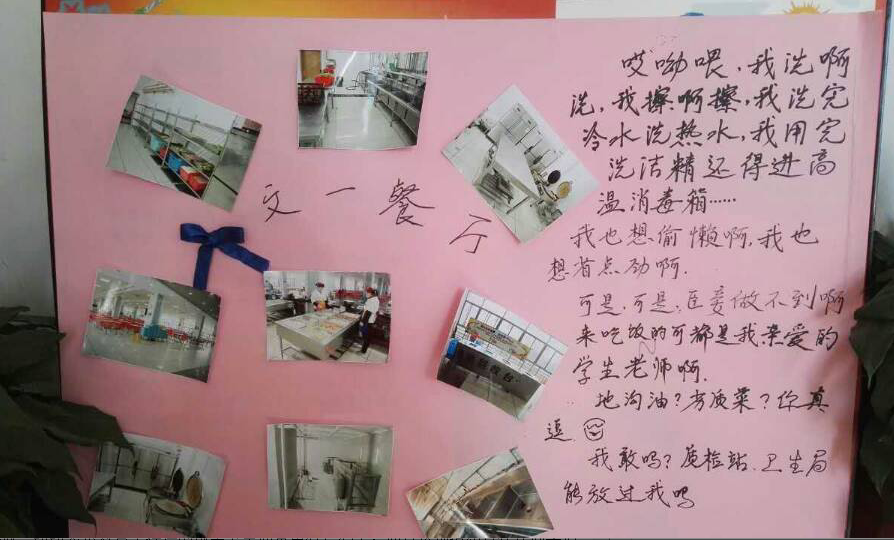 文一餐厅
哎呦喂,我洗啊
洗,我擦啊擦,我洗完
冷水洗热水,我用完
洗洁精还得进高
温消毒箱……
我也想偷懒啊,我也
想省点劲啊.
可是,可是,臣妾做不到啊
来吃饭的可都是我亲爱的
学生老师啊.
地沟油?劣质菜?你真
逗
我敢吗?质检站.卫生局
能放过我吗